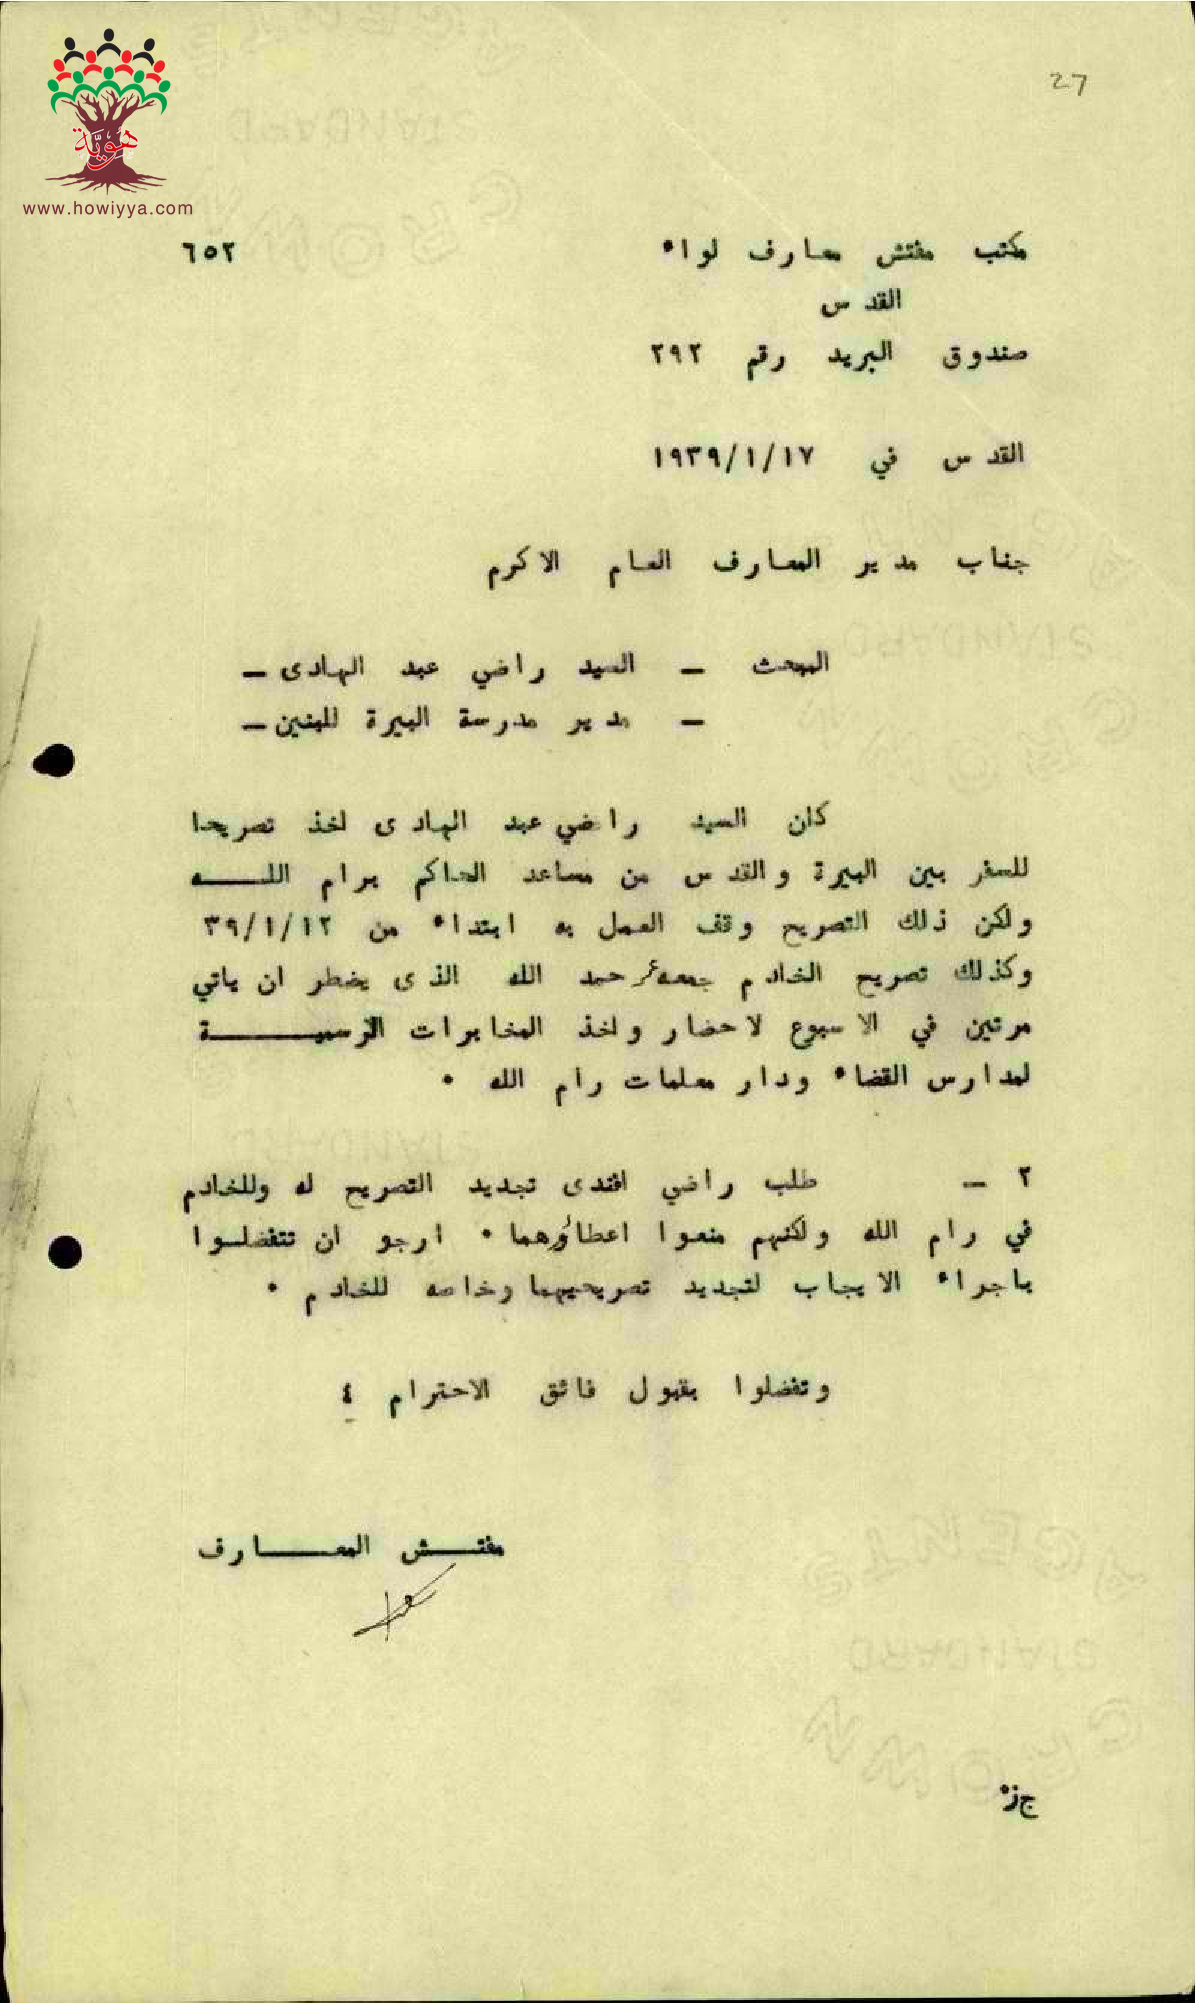 27
هوية
www.howiyya.com
مكتب مفتش معارف لواء ٦٥٢
القدس
صندوق البريد رقم ٢٩٢
القدس في ١٩٣٩/١/١٧
جناب مدير المعارف العام الاكرم
المبحث – السيد راضي عبد الهادى –
– مدير مدرسة البيرة للبنين –
كان السيد راضي عبد الهادى اخذ تصريحا
للسفر بين البيرة والقدس من مساعد الحاكم برام اللــه
ولكن ذلك التصريح وقف العمل به ابتداء من ٣٩/١/١٢
وكذلك تصريح الخادم جمعه حمد الله الذى يضطر ان ياتي
مرتين في الاسبوع لاحضار واخذ المخابرات الرسميــــة
لمدارس القضاء ودار معلمات رام الله .
٢ – طلب راضي افندى تجديد التصريح له وللخادم
في رام الله ولكنهم منعوا اعطاؤهما . ارجو ان تتفضلـوا
باجراء الايجاب لتجديد تصريحيهما وخاصه للخادم .
وتفضلوا بقبول فائق الاحترام ٤
مفتـــش المعـــارف
ج ز
STANDARD
CROWN
AGENTS
STANDARD
CROWN